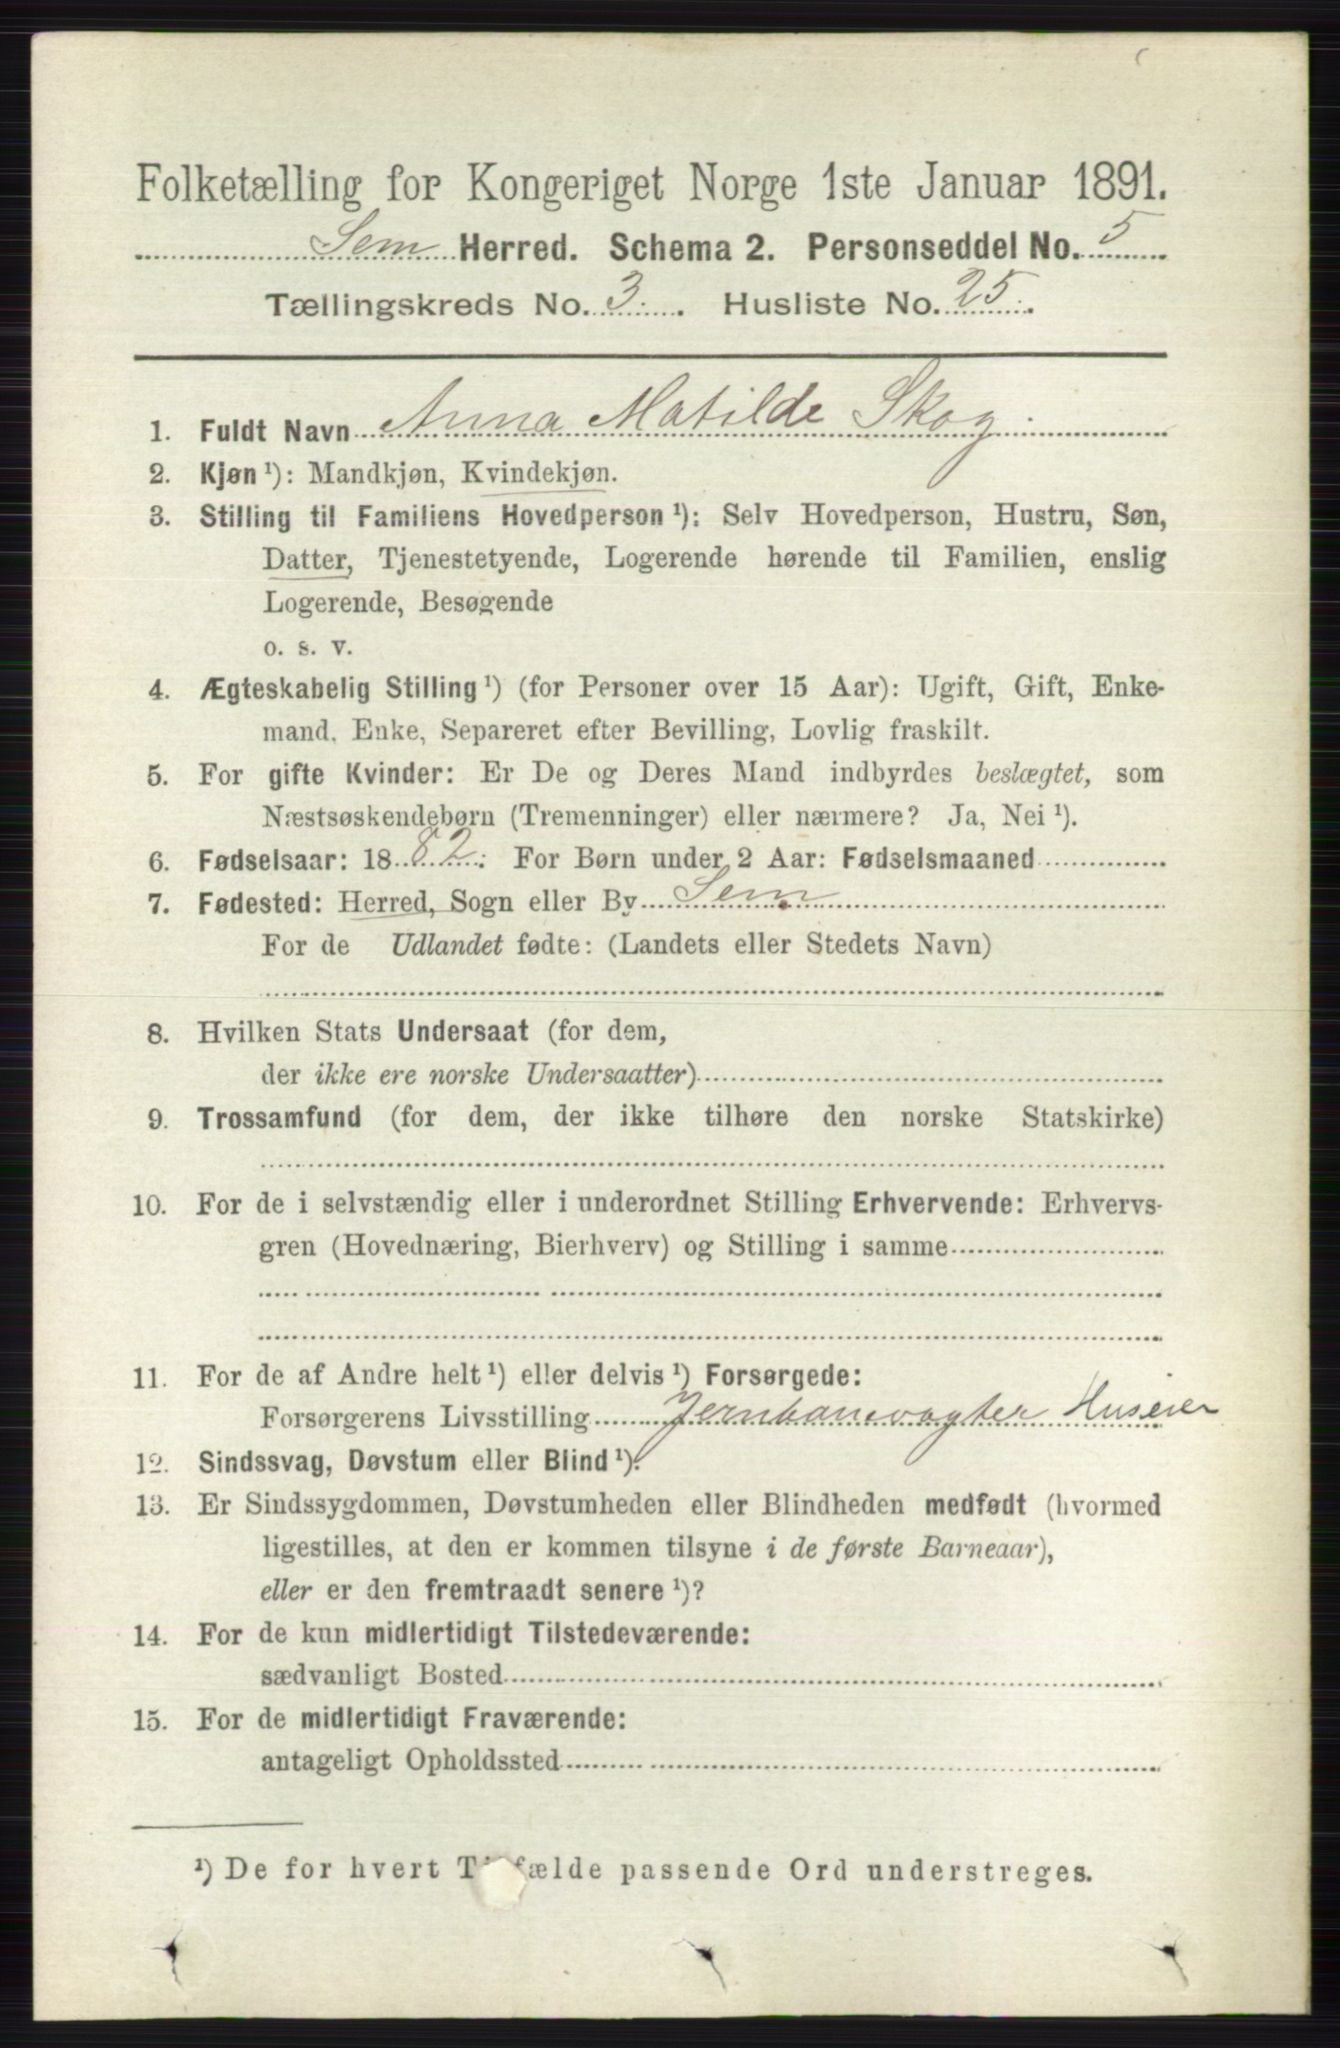 Folketælling for Kongeriget Norge 1ste Januar 1891.
Sem Herred. Schema 2. Personseddel No. 5
Tællingskreds No. 3. Husliste No. 25.
1. Fuldt Navn Anna Matilde Skog.
2. Kjøn ¹): Mandkjøn, Kvindekjøn.
3. Stilling til Familiens Hovedperson ¹): Selv Hovedperson, Hustru, Søn,
Datter, Tjenestetyende, Logerende hørende til Familien, enslig
Logerende, Besøgende
o. s. v.
4. Ægteskabelig Stilling ¹) (for Personer over 15 Aar): Ugift, Gift, Enke-
mand, Enke, Separeret efter Bevilling, Lovlig fraskilt.
5. For gifte Kvinder: Er De og Deres Mand indbyrdes beslægtet, som
Næstsøskendebørn (Tremenninger) eller nærmere? Ja, Nei ¹).
6. Fødselsaar: 1882. For Børn under 2 Aar: Fødselsmaaned
7. Fødested: Herred, Sogn eller By Sem
For de Udlandet fødte: (Landets eller Stedets Navn)
8. Hvilken Stats Undersaat (for dem,
der ikke ere norske Undersaatter)
9. Trossamfund (for dem, der ikke tilhøre den norske Statskirke)
10. For de i selvstændig eller i underordnet Stilling Erhvervende: Erhvervs-
gren (Hovednæring, Bierhverv) og Stilling i samme
11. For de af Andre helt ¹) eller delvis ¹) Forsørgede:
Forsørgerens Livsstilling Jernbanevagter Huseier
12. Sindssvag, Døvstum eller Blind ¹).
13. Er Sindssygdommen, Døvstumheden eller Blindheden medfødt (hvormed
ligestilles, at den er kommen tilsyne i de første Barneaar),
eller er den fremtraadt senere ¹)?
14. For de kun midlertidigt Tilstedeværende:
sædvanligt Bosted
15. For de midlertidigt Fraværende:
antageligt Opholdssted
¹) De for hvert Tilfælde passende Ord understreges.